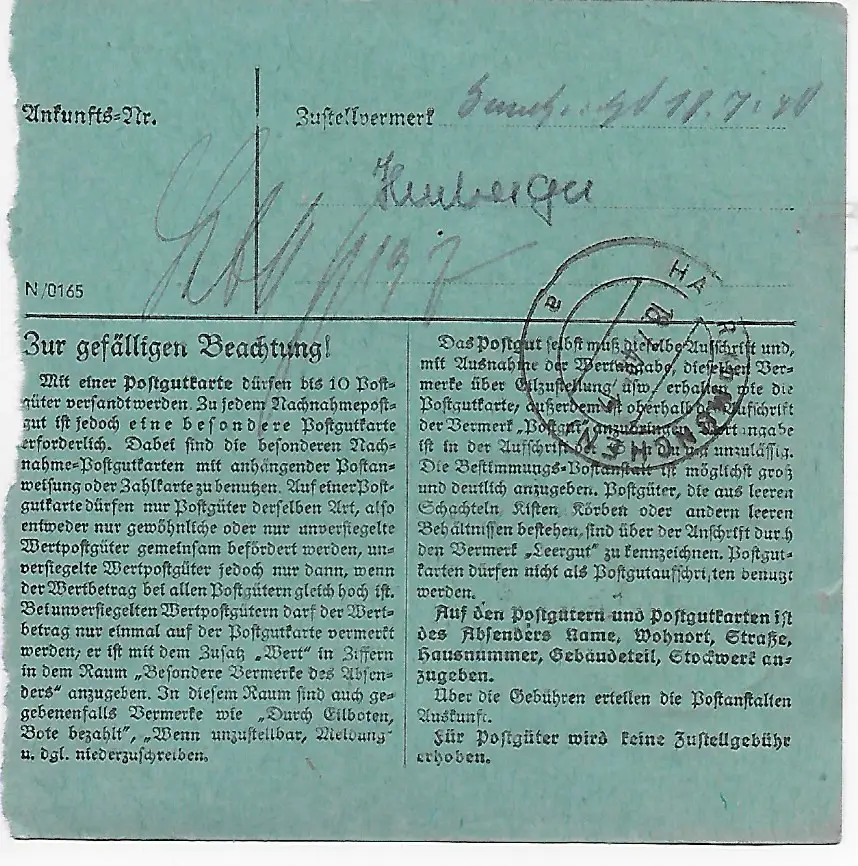 Ankunfts-Nr.
Zustellvermerk 18.7.40
N/0165
Zur gefälligen Beachtung!
Mit einer Postgutkarte dürfen bis 10 Post-
güter versandt werden. Zu jedem Nachnahmepost-
gut ist jedoch eine besondere Postgutkarte
erforderlich. Dabei sind die besonderen Nach-
nahme-Postgutkarten mit anhängender Postan-
weisung oder Zahlkarte zu benutzen. Auf einer Post-
gutkarte dürfen nur Postgüter derselben Art, also
entweder nur gewöhnliche oder nur unversiegelte
Wertpostgüter gemeinsam befördert werden, un-
versiegelte Wertpostgüter jedoch nur dann, wenn
der Wertbetrag bei allen Postgütern gleich hoch ist.
Bei unversiegelten Wertpostgütern darf der Wert-
betrag nur einmal auf der Postgutkarte vermerkt
werden; er ist mit dem Zusatz „Wert" in Ziffern
in dem Raum „Besondere Vermerke des Absen-
ders" anzugeben. In diesem Raum sind auch ge-
gebenenfalls Vermerke wie „Durch Eilboten,
Bote bezahlt", „Wenn unzustellbar, Meldung"
u. dgl. niederzuschreiben.
Das Postgut selbst muß dieselbe Aufschrift und,
mit Ausnahme der Wertangabe, dieselben Ver-
merke über Eilzustellung usw. erhalten wie die
Postgutkarte, außerdem ist oberhalb der Aufschrift
der Vermerk „Postgut" anzubringen. Wertangabe
ist in der Aufschrift unzulässig.
Die Bestimmungs-Postanstalt ist möglichst groß
und deutlich anzugeben. Postgüter, die aus leeren
Schachteln, Kisten, Körben oder andern leeren
Behältnissen bestehen, sind über der Anschrift durch
den Vermerk „Leergut" zu kennzeichnen. Postgut-
karten dürfen nicht als Postgutaufschriften benutzt
werden.
Auf den Postgütern und Postgutkarten ist
des Absenders Name, Wohnort, Straße,
Hausnummer, Gebäudeteil, Stockwerk an-
zugeben.
Über die Gebühren erteilen die Postanstalten
Auskunft.
Für Postgüter wird keine Zustellgebühr
erhoben.
HAAR
MÜNCHEN
a